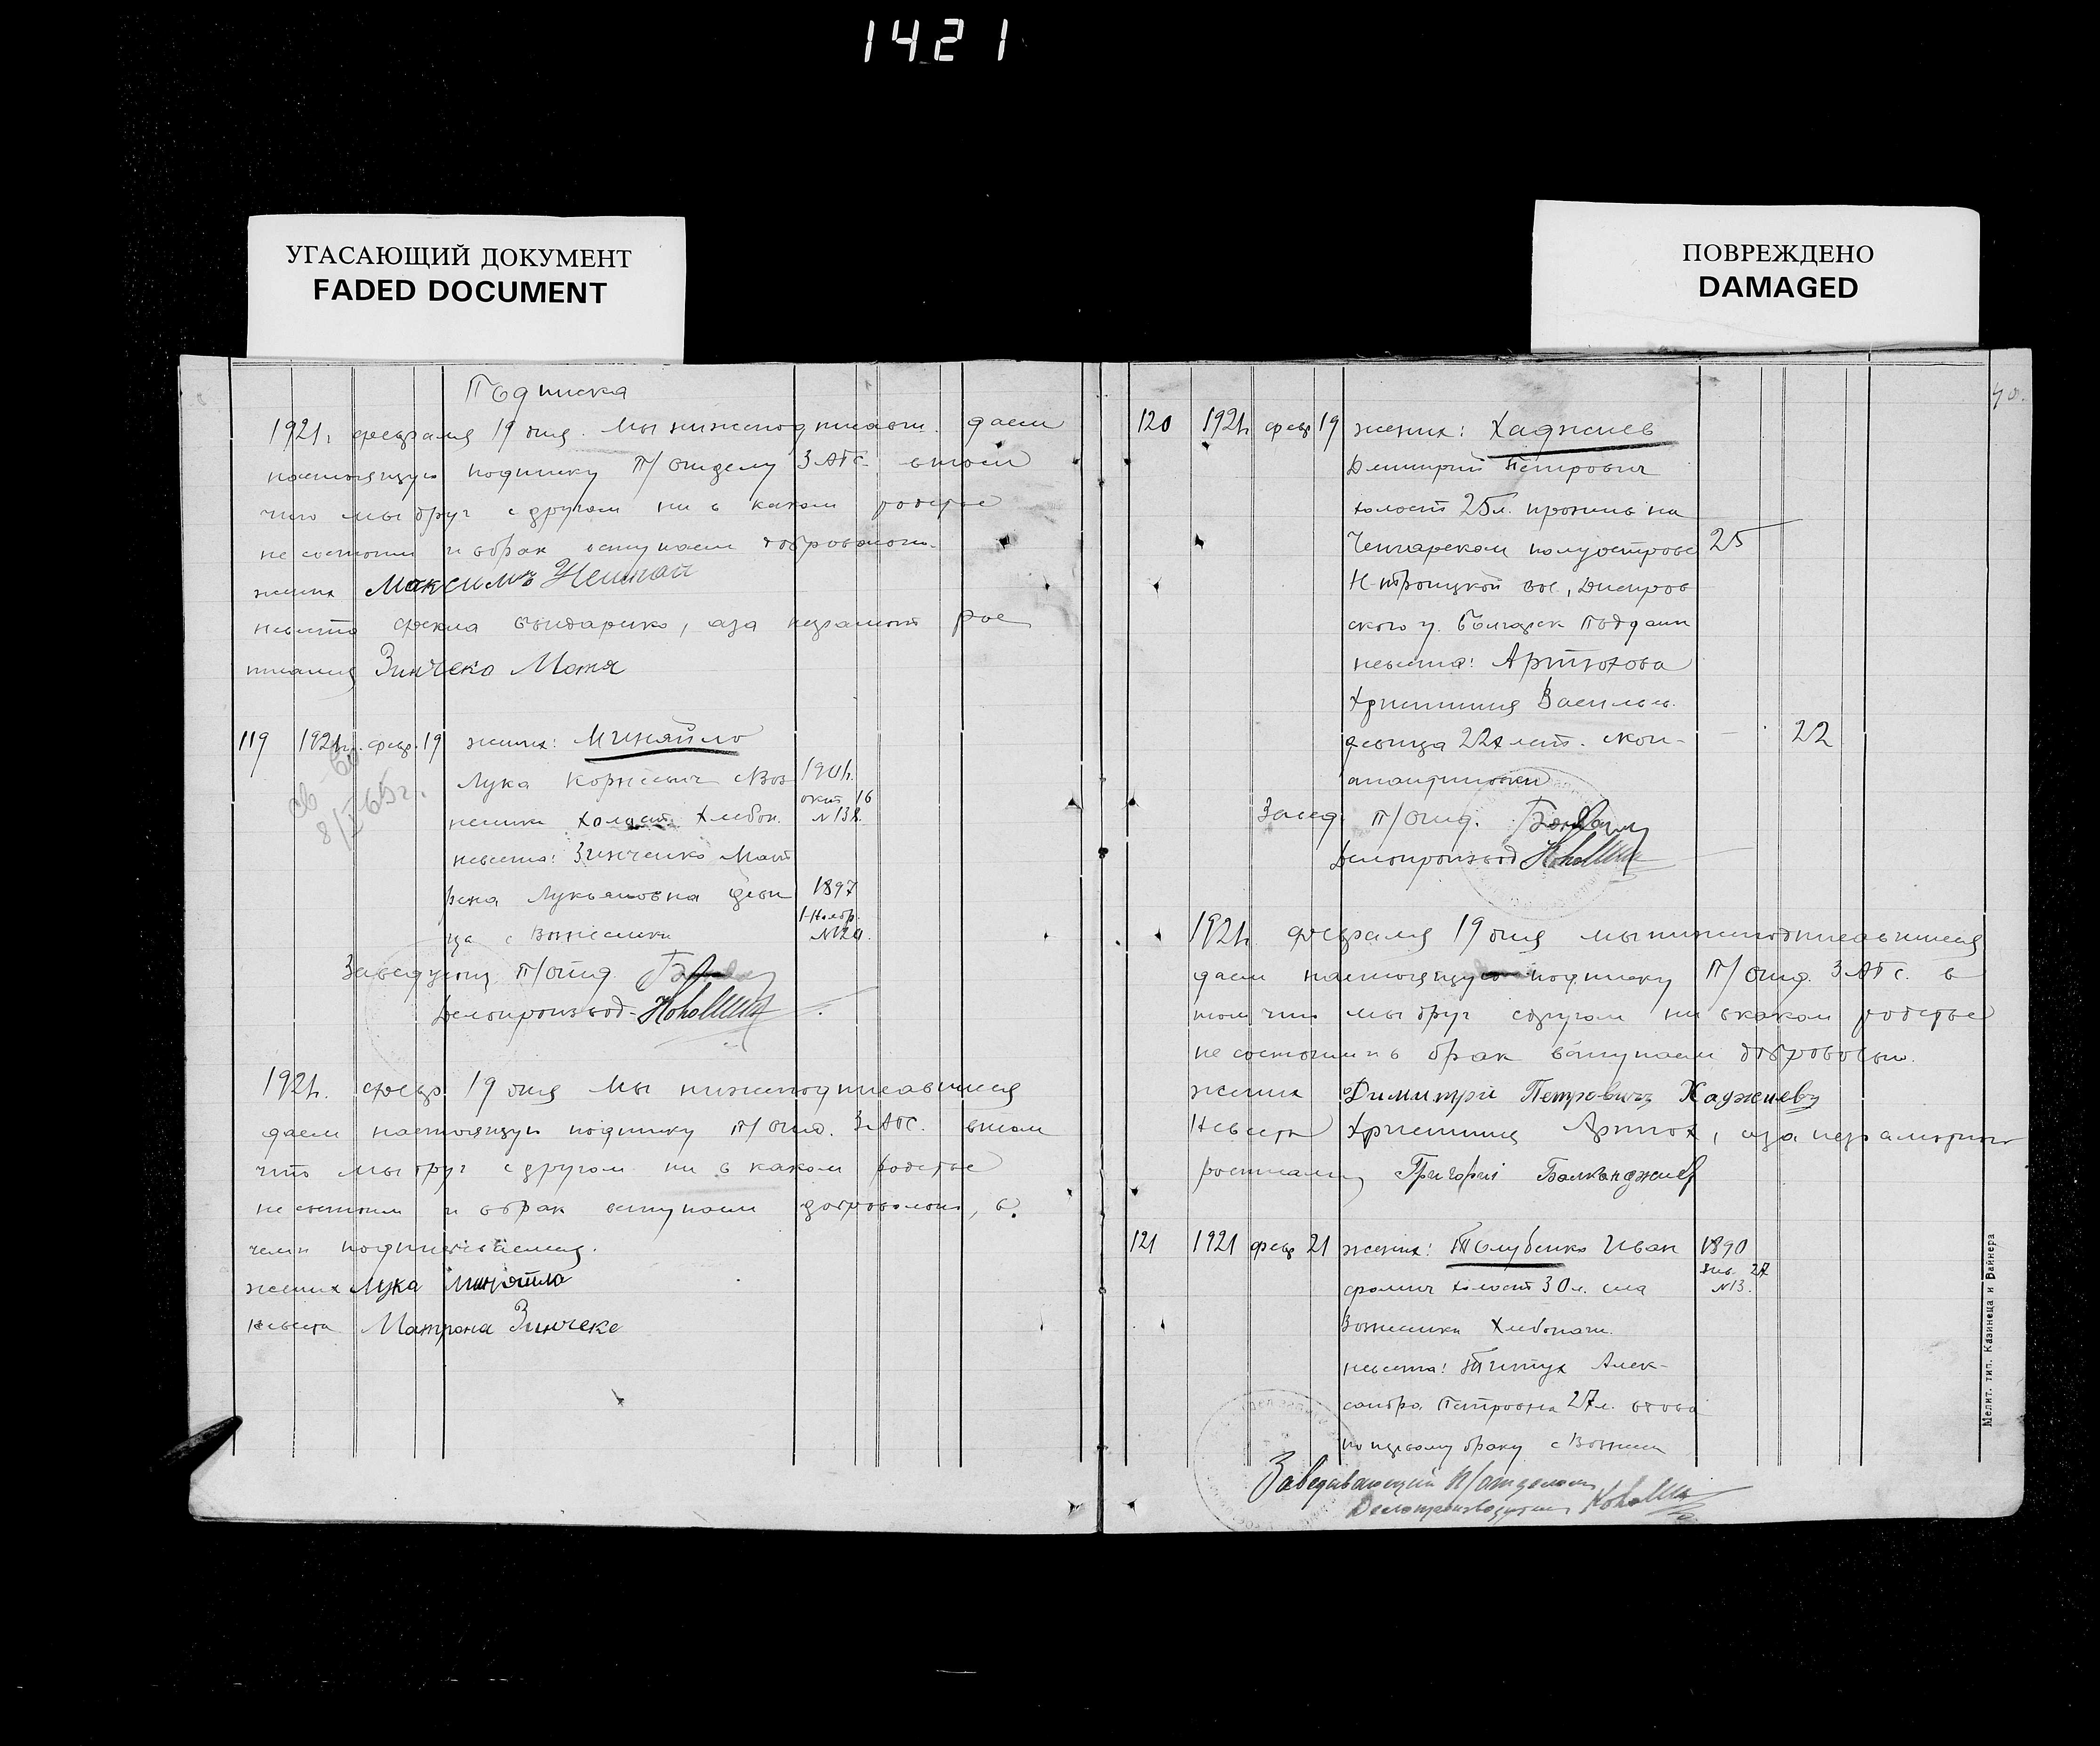 1421
УГАСАЮЩИЙ ДОКУМЕНТ
FADED DOCUMENT
ПОВРЕЖДЕНО
DAMAGED
Подписка
1921г. февраля 19 дня. Мы нижеподписавш. даем
настоящую подписку П/Отделу ЗАГС. втом
что мы друг с другом ни в каком родстве
не состоим и вбрак вступаем добровольно.
жених Максимъ
невеста Фекла Бондаренко, аза неграмот рос
писался Зинчеко Мотя
119 1921г. февр. 19 жених: Миняйло
Лука Корнеевич с Воз 190 г.
несенки холост. Хлебоп. окт 16 N 138.
невеста: Зинченко Мат
рена Лукьяновна деви 1897
ца с Вознесенки 1-Ноябр. N124.
8/I 65г.
Заведующ П/отд.
Делопроизвод-
1921г. февр. 19 дня Мы нижеподписавшиеся
даем настоящую подписку П/Отд. ЗАГС. втом
что мы друг с другом ни в каком родстве
не состоим и вбрак вступаем добровольно, в
чем и подписываемся.
жених Лука Миняйло
невеста Матрона Зинчеко
40.
120 1921г. февр 19 жених: Хаджиев
Димитрий Петрович
холост 25 л. прожив на
Чонгарском полуострове 25
Н-троицкой вол, Днепров
ского у. Болгарск поддан
невеста: Артюхова
Христиния Васильев.
девица 22х лет. 22
Завед. П/отд.
Делопроизвод
1921г. февраля 19 дня мы нижеподписавшиеся
даем настоящую подписку П/Отд. ЗАГС. в
том что мы друг сдругом ни вкаком родстве
не состоим и в брак вступаем добровольно.
жених Димитрій Петровичъ Хаджиевъ
Невеста Христиния Артюх, аза неграмотную
росписался Григорій Балканджиев
121 1921 февр 21 жених: Голубенко Иван 1890
холост 30 л. села Янв. 27 N13.
Вознесенки Хлебопаш.
невеста: Титух Алек-
сандра Петровна 27 л. вдова
по первому браку с Вознесен
Заведывающий П/отделом
Делопроизводитель
Мелит. тип. Казинеца и Вайнера